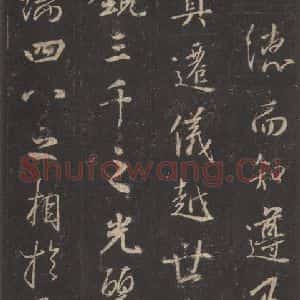 德而知遵及
真遷儀越世
鏡三千之光麗
端四八之相於
Shufawang.CN